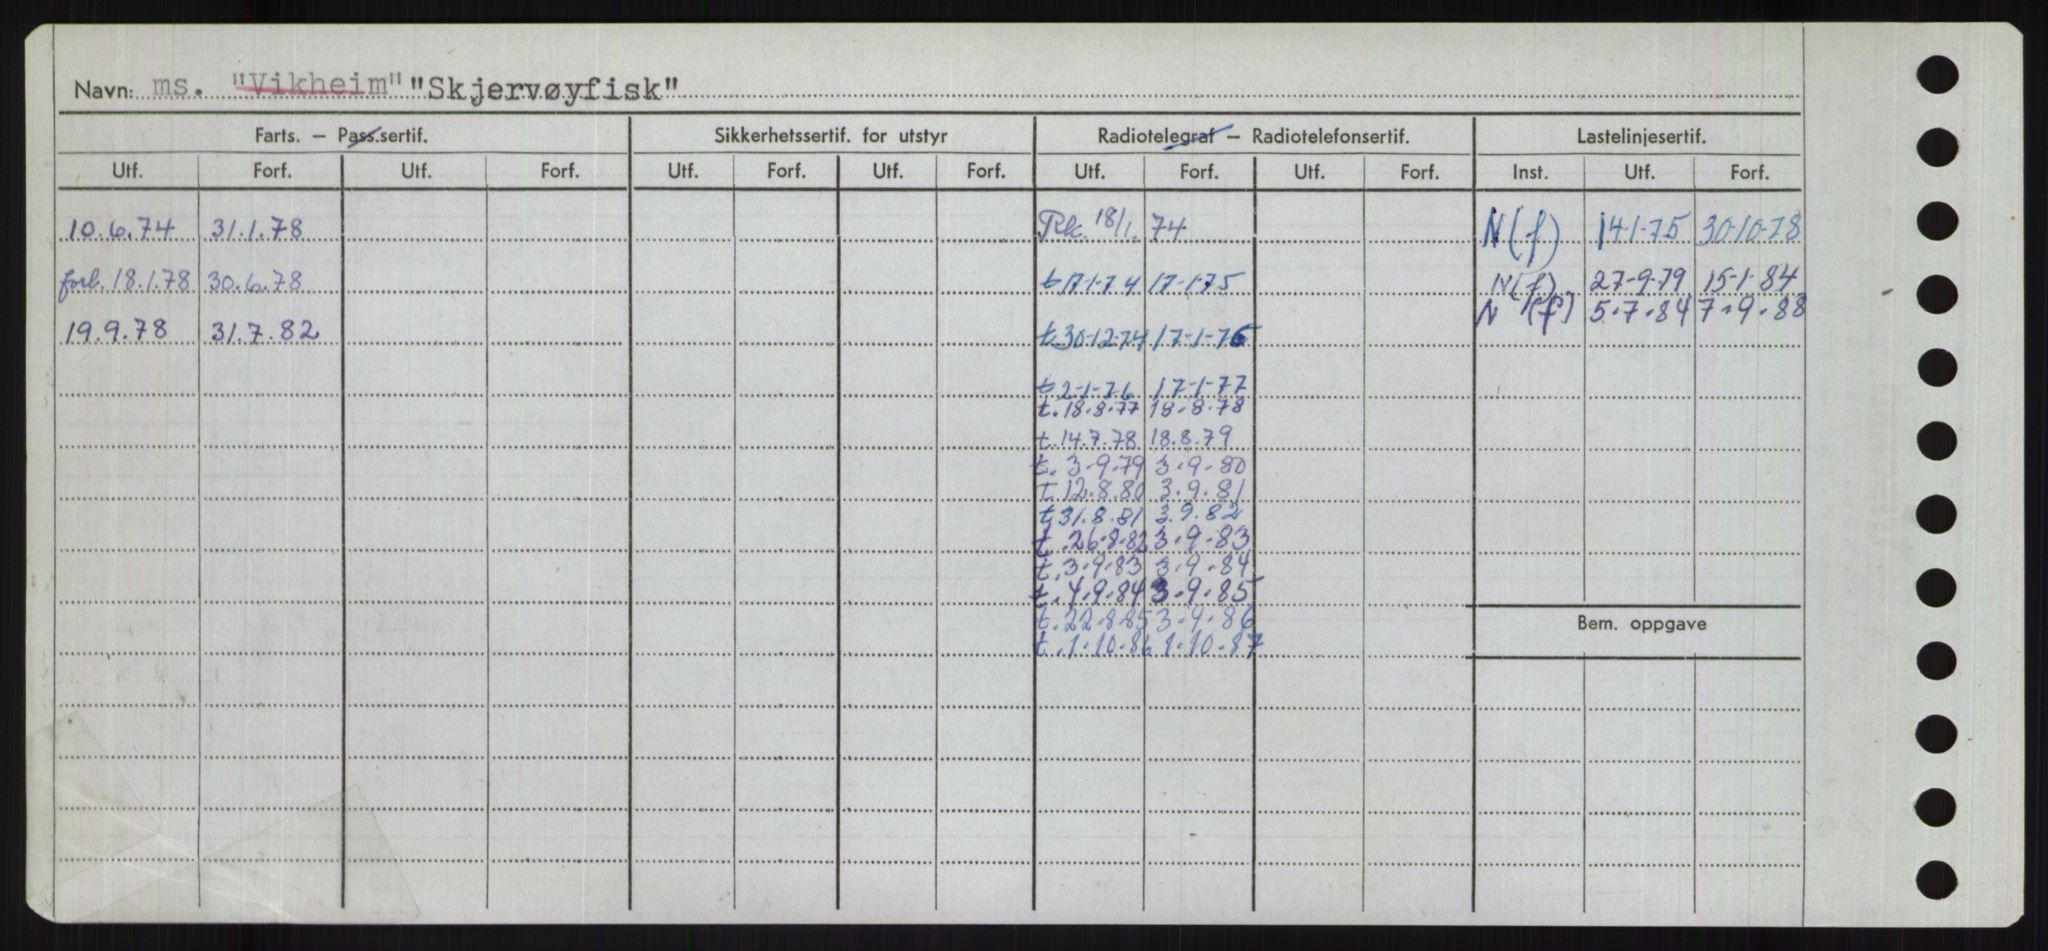 Navn: ms. "Vikheim" "Skjervøyfisk"
Farts. – Pass.sertif. Sikkerhetssertif. for utstyr Radiotelegraf – Radiotelefonsertif. Lastelinjesertif.
Utf. Forf. Utf. Forf. Utf. Forf. Utf. Forf. Utf. Forf. Utf. Forf. Inst. Utf. Forf.
10.6.74 31.1.78 18/1. 74 N(f) 14-1-75 30-10-78
forl. 18.1.78 30.6.78 t 17-1-74 17-1-75 N(f) 27-9-79 15-1-84
N (f) 5.7.84 7.9.88
19.9.78 31.7.82 t.30-12-74 17-1-76
t 2-1-76 17-1-77
t. 18.8.77 18.8.78
t.14.7.78 18.8.79
t. 3.9.79 3.9.80
t 12.8.80 3.9.81
t 31.8.81 3.9.82
t. 26.8.82 3.9.83
t. 3.9.83 3.9.84
t. 4.9.84 3.9.85
t. 22.8.85 3.9.86
t. 1.10.86 1.10.87
Bem. oppgave